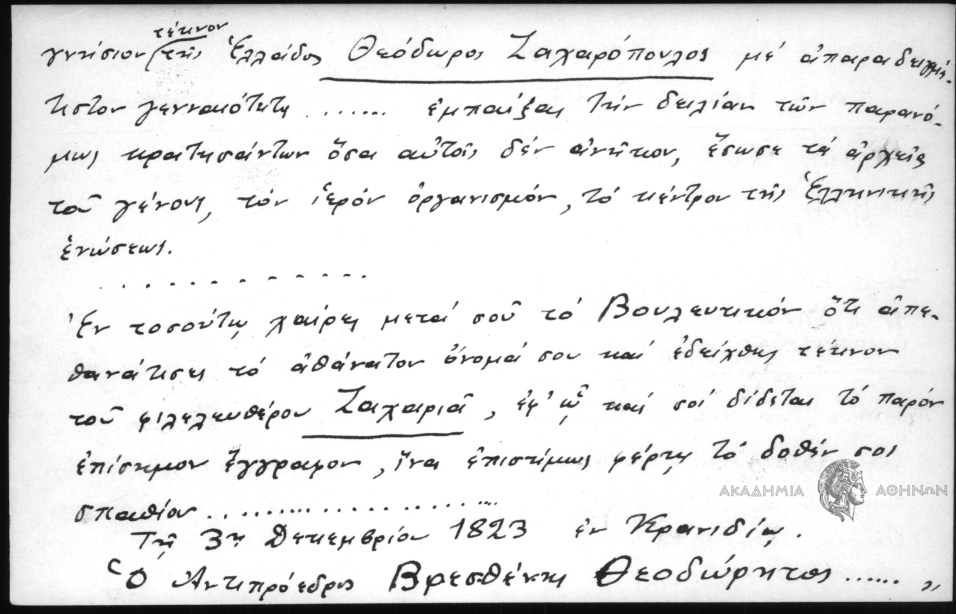 τέκνον
γνήσιον (τῆς Ἑλλάδος Θεόδωρος Ζαχαρόπουλος μέ ἀπαραδειγμά-
τιστον γενναιότητα ....... ἐμπαίξας τήν δειλίαν τῶν παρανό-
μως κρατησάντων ὅσα αὐτοῖς δέν ἀνῆκον, ἔσωσε τά ἀρχεῖα
τοῦ γένους, τόν ἱερόν ὀργανισμόν, τό κέντρον τῆς Ἑλληνικῆς
ἑνώσεως.
. . . . . . . . . . . .
Ἐν τοσούτῳ χαίρει μετά σοῦ τό Βουλευτικόν ὅτι ἀπε-
θανάτισες τό ἀθάνατον ὄνομά σου καί ἐδείχθης τέκνον
τοῦ φιλελευθέρου Ζαχαριᾶ, ἐφ' ᾧ καί σοί δίδεται τό παρόν
ἐπίσημον ἔγγραφον, ἵνα ἐπιστίμως φέρῃς τό δοθέν σοι
σπαθίον....................
Τῇ 3ῃ Δεκεμβρίου 1823 ἐν Κρανιδίῳ.
Ὁ Ἀντιπρόεδρος Βρεσθένης Θεοδώρητος ...... „
ΑΚΑΔΗΜΙΑ ΑΘΗΝΩΝ